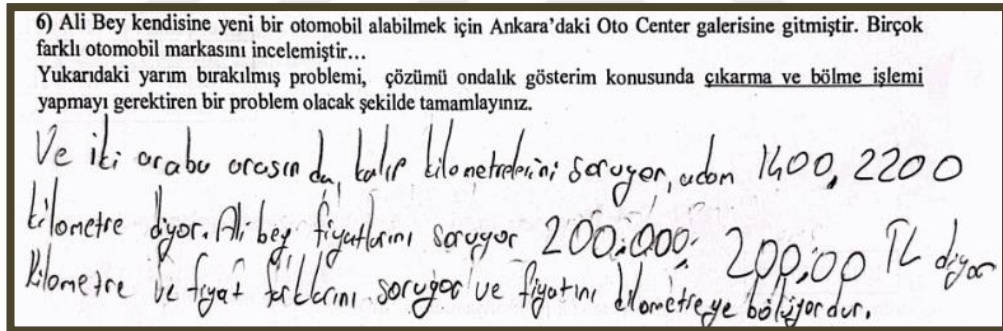 6) Ali Bey kendisine yeni bir otomobil alabilmek için Ankara'daki Oto Center galerisine gitmiştir. Birçok
farklı otomobil markasını incelemiştir...
Yukarıdaki yarım bırakılmış problemi, çözümü ondalık gösterim konusunda çıkarma ve bölme işlemi
yapmayı gerektiren bir problem olacak şekilde tamamlayınız.
Ve iki araba arasında kalıp kilometrelerini soruyor, adam 1400, 2200
kilometre diyor. Ali bey fiyatlarını soruyor 200.000, 200,00 TL diyor
kilometre ve fiyat farklarını soruyor ve fiyatını kilometreye bölüyordur.